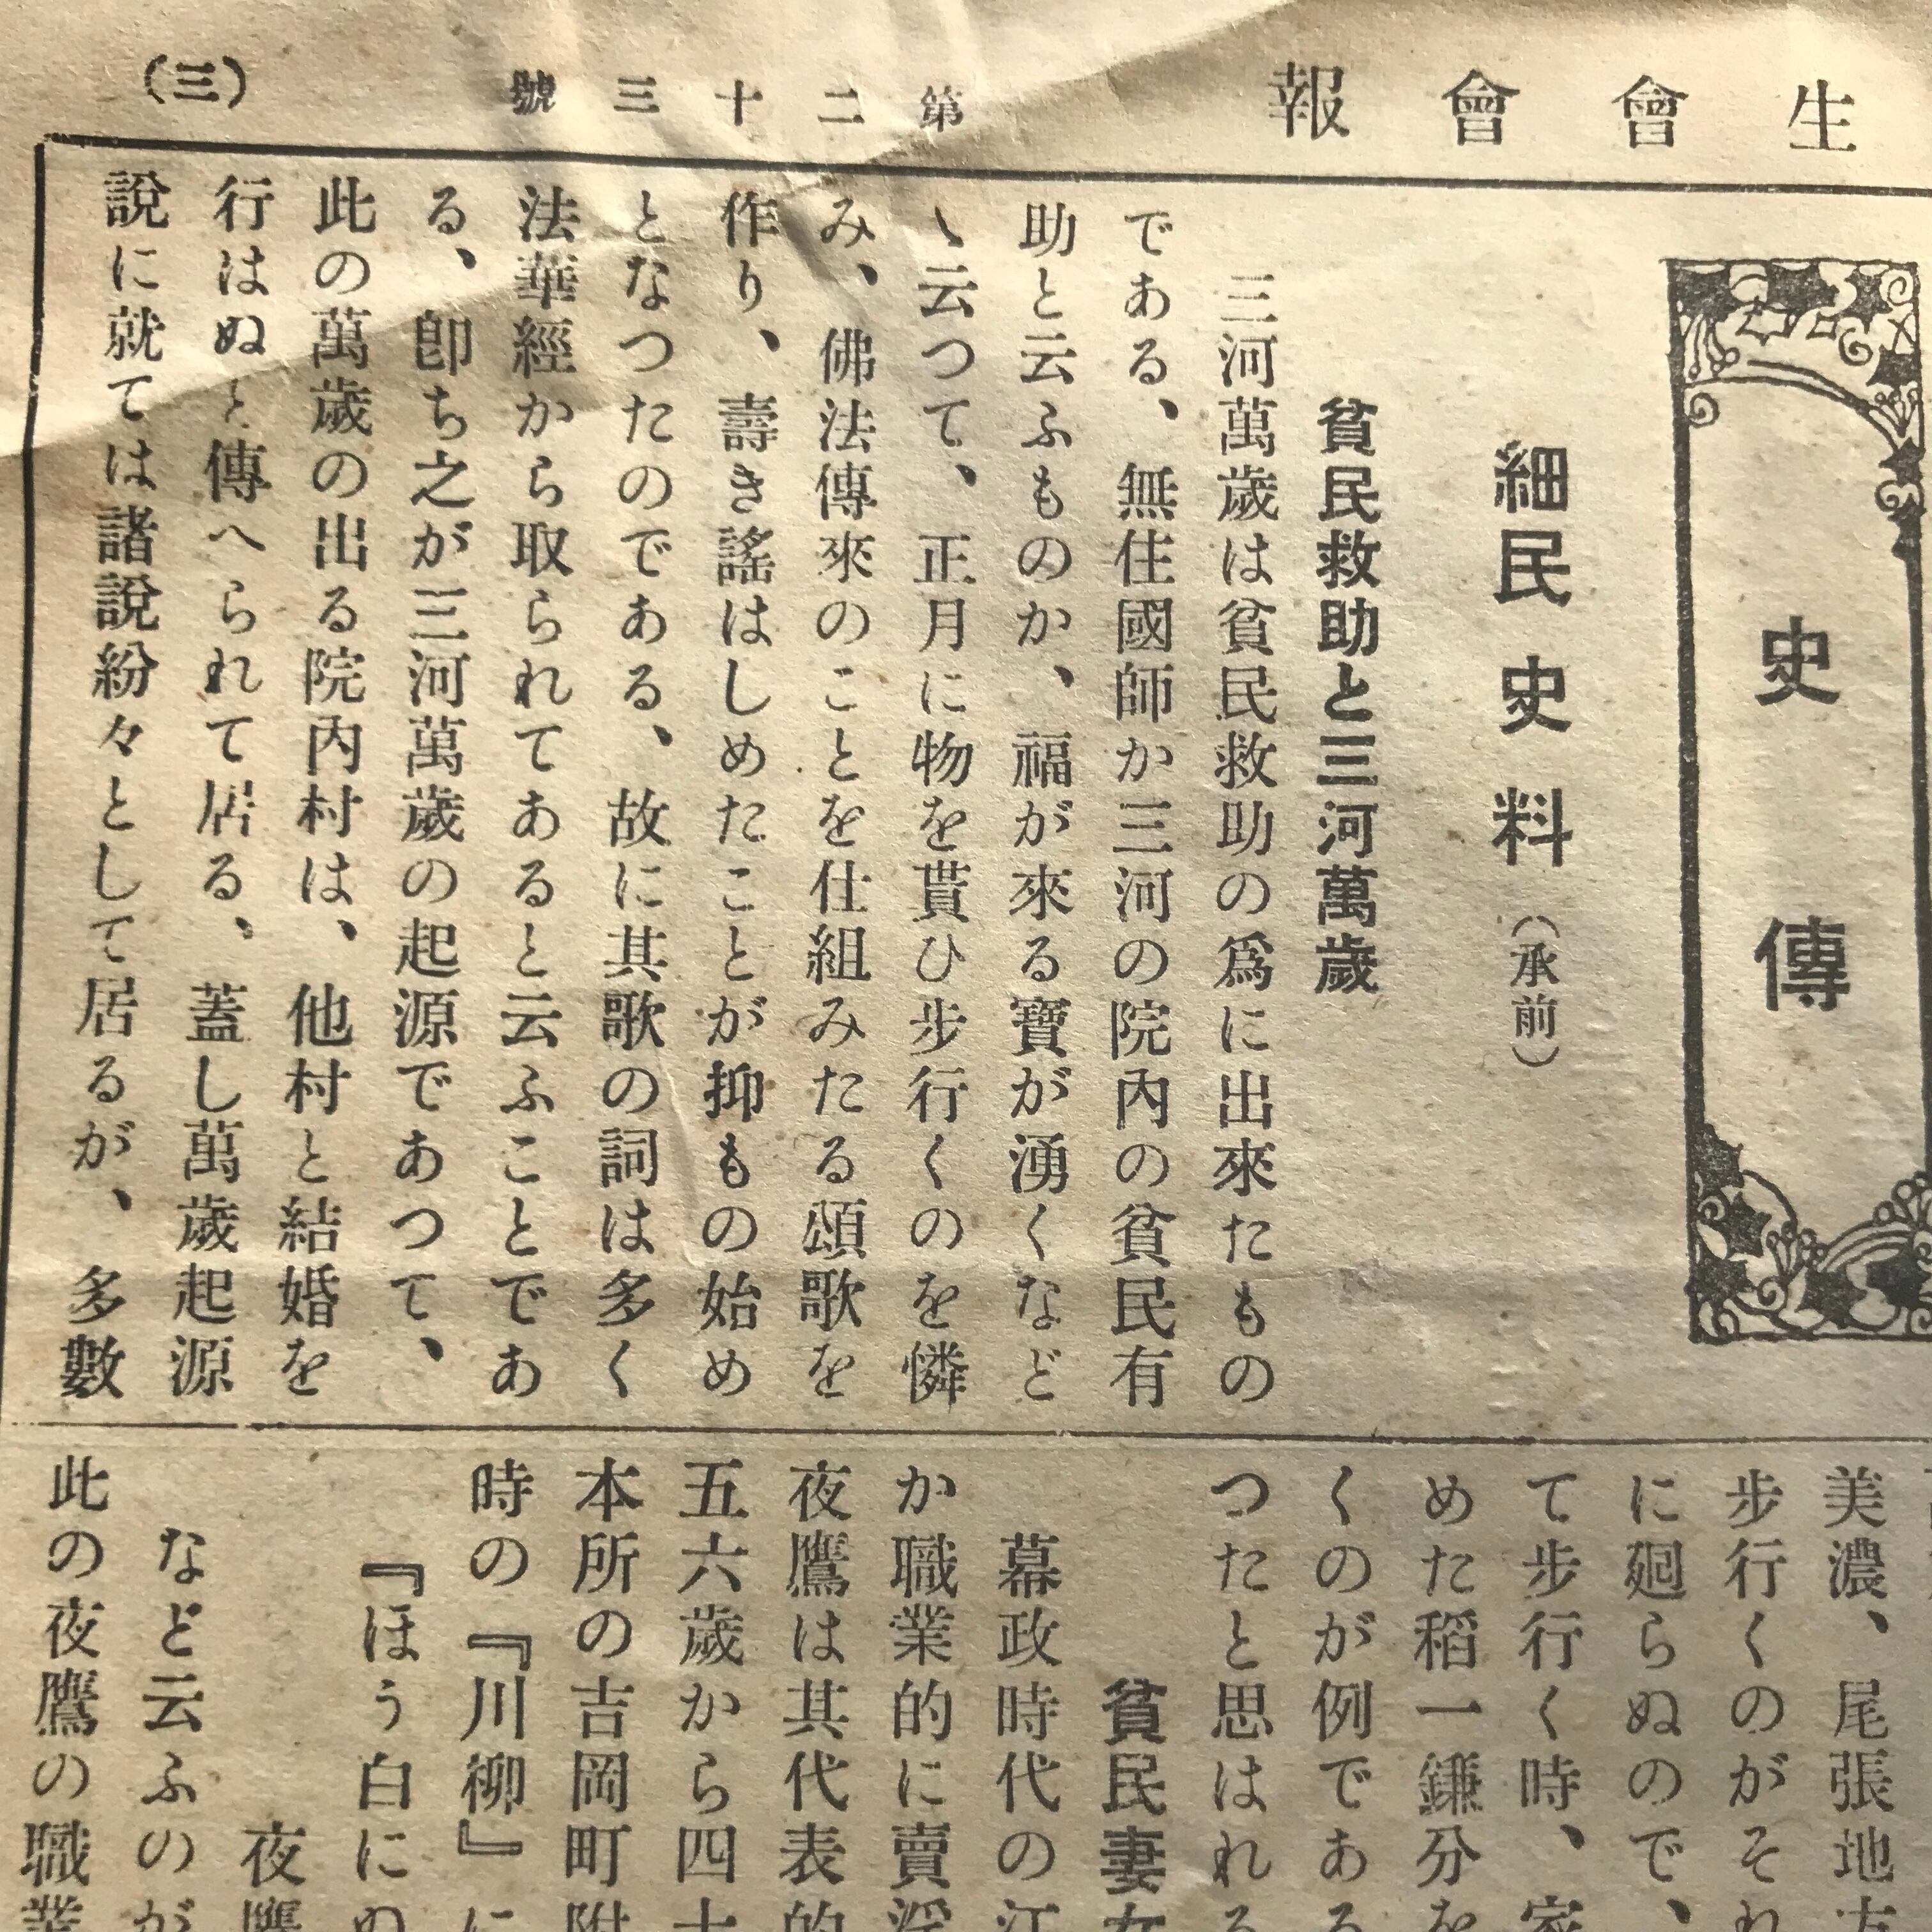 生會會報
第二十三號
(三)
史傳
細民史料(承前)
貧民救助と三河萬歲
三河萬歲は貧民救助の爲に出來たもの
である、無住國師か三河の院內の貧民有
助と云ふものか、福が來る寶が湧くなど
ゝ云つて、正月に物を貰ひ步行くのを憐
み、佛法傳來のことを仕組みたる頌歌を
作り、壽き謠はしめたことが抑もの始め
となつたのである、故に其歌の詞は多く
法華經から取られてあると云ふことであ
る、卽ち之が三河萬歲の起源であつて、
此の萬歲の出る院內村は、他村と結婚を
行はぬと傳へられて居る、蓋し萬歲起源
說に就ては諸說紛々として居るが、多數
美濃、尾張地
步行くのがそれ
に廻らぬので、
て步行く時、
めた稻一鎌分を
くのが例である
つたと思はれる
貧民妻女
幕政時代の江
か職業的に賣淫
夜鷹は其代表的
五六歲から四十
本所の吉岡町附
時の『川柳』に
『ほう白にぬ
夜鷹
など云ふのが
此の夜鷹の職業